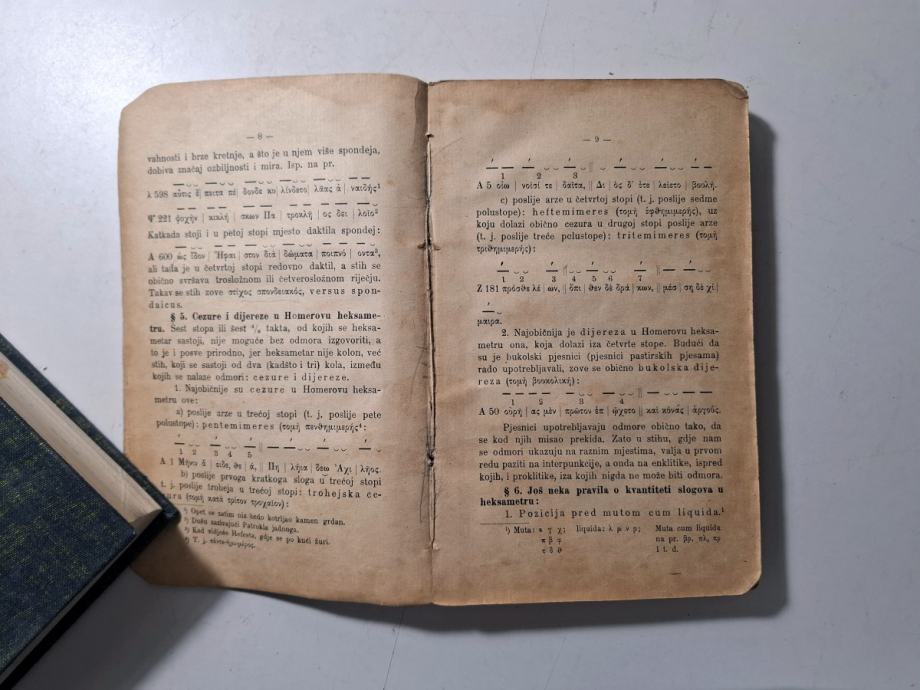 — 8 —
vahnosti i brze kretnje, a što je u njem više spondeja,
dobiva značaj ozbiljnosti i mira. Isp. na pr.
λ 598 αὖτις ἔ | πειτα πέ | δονδε κυ | λίνδετο | λᾶας ἀ | ναιδής¹
Ψ 221 ψυχὴν | κικλή | σκων Πα | τροκλῆ | ος δει | λοῖο²
Katkada stoji i u petoj stopi mjesto daktila spondej:
Α 600 ὡς ἴδον | Ἥφαι | στον διὰ | δώματα | ποιπνύ | οντα³,
ali tada je u četvrtoj stopi redovno daktil, a stih se
obično svršava trosložnom ili četverosložnom riječju.
Takav se stih zove στίχος σπονδειακός, versus spon-
daicus.
§ 5. Cezure i dijereze u Homerovu heksame-
tru. Šest stopa ili šest ⁴/₈ takta, od kojih se heksa-
metar sastoji, nije moguće bez odmora izgovoriti, a
to je i posve prirodno, jer heksametar nije kolon, već
stih, koji se sastoji od dva (kadšto i tri) kola, između
kojih se nalaze odmori: cezure i dijereze.
1. Najobičnije su cezure u Homerovu heksa-
metru ove:
a) poslije arze u trećoj stopi (t. j. poslije pete
polustope): pentemimeres (τομὴ πενθημιμερής⁴:
1 2 3 4 5
Α 1 Μῆνιν ἄ | ειδε, θε | ά, ‖ Πη | ληιά | δεω Ἀχι | λῆος.
b) poslije prvoga kratkoga sloga u trećoj stopi
t. j. poslije troheja u trećoj stopi: trohejska ce-
zura (τομὴ κατὰ τρίτον τροχαῖον):
¹) Opet se zatim niza brdo kotrljao kamen grdan.
²) Dušu zazivajući Patrokla jadnoga.
³) Kad vidješe Hefesta, gdje se po kući žuri.
⁴) T. j. πεντε-ήμι-μέρος.
— 9 —
1 2 3
Α 5 οἰω | νοῖσί τε | δαῖτα, ‖ Δι | ὸς δ' ἐτε | λείετο | βουλή.
c) poslije arze u četvrtoj stopi (t. j. poslije sedme
polustope): heftemimeres (τομὴ ἑφθημιμερής), uz
koju dolazi obično cezura u drugoj stopi poslije arze
(t. j. poslije treće polustope): tritemimeres (τομὴ
τριθημιμερής):
1 2 3 4 5 6 7
Ζ 181 πρόσθε λέ | ων, ‖ ὄπι | θεν δὲ δρά | κων, ‖ μέσ | ση δὲ χί |
μαιρα.
2. Najobičnija je dijereza u Homerovu heksa-
metru ona, koja dolazi iza četvrte stope. Budući da
su je bukolski pjesnici (pjesnici pastirskih pjesama)
rado upotrebljavali, zove se obično bukolska dije-
reza (τομὴ βουκολική):
1 2 3 4
Α 50 οὐρῆ | ας μὲν | πρῶτον ἐπ | ῴχετο ‖ καὶ κύνας | ἀργούς.
Pjesnici upotrebljavaju odmore obično tako, da
se kod njih misao prekida. Zato u stihu, gdje nam
se odmori ukazuju na raznim mjestima, valja u prvom
redu paziti na interpunkcije, a onda na enklitike, ispred
kojih, i proklitike, iza kojih nigda ne može biti odmora.
§ 6. Još neka pravila o kvantiteti slogova u
heksametru:
1. Pozicija pred mutom cum liquida.¹
¹) Muta: κ γ χ; liquida: λ μ ν ρ; Muta cum liquida
π β φ na pr. βρ, πλ, πρ
τ δ θ i t. d.